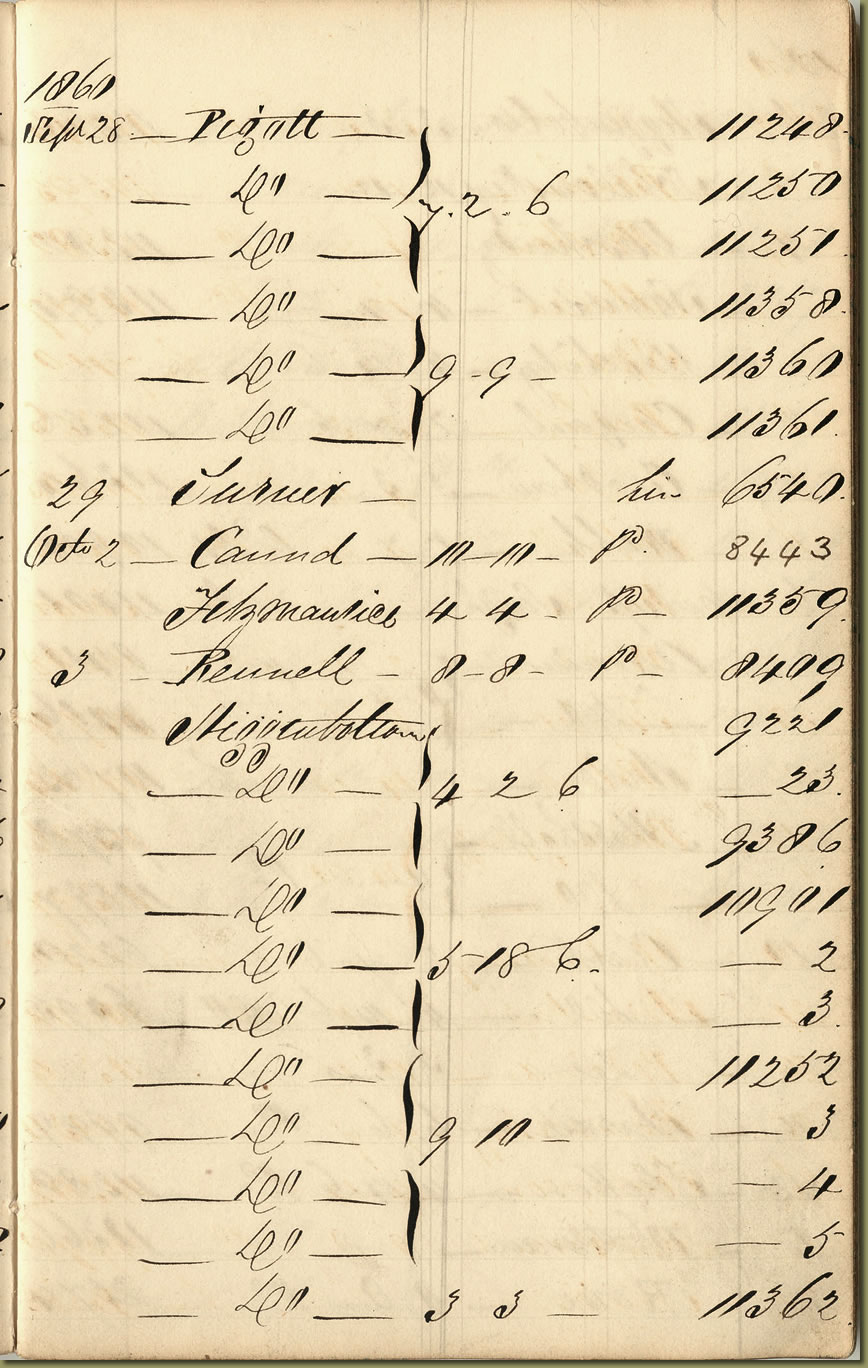 1860
Sept 28 — Pigott — 11248.
— Do — 7. 2. 6 11250
— Do — 11251.
— Do — 11358.
— Do — 9 - 9 - 11360
— Do — 11361.
29 Turner — 6540.
Octo 2 — Caund — 10-10- P. 8443
Fitzmaurice 4 4 - P — 11359.
3 — Rennell — 8-8- P — 8409
Higginbottom 9221
— Do — 4 2 6 — 23.
— Do — 9386
— Do — 10901
— Do — 5-18 6. — 2
— Do — — 3.
— Do — 11252
— Do — 9 10 — — 3
— Do — — 4
— Do — — 5
— Do — 3 3 — 11362.